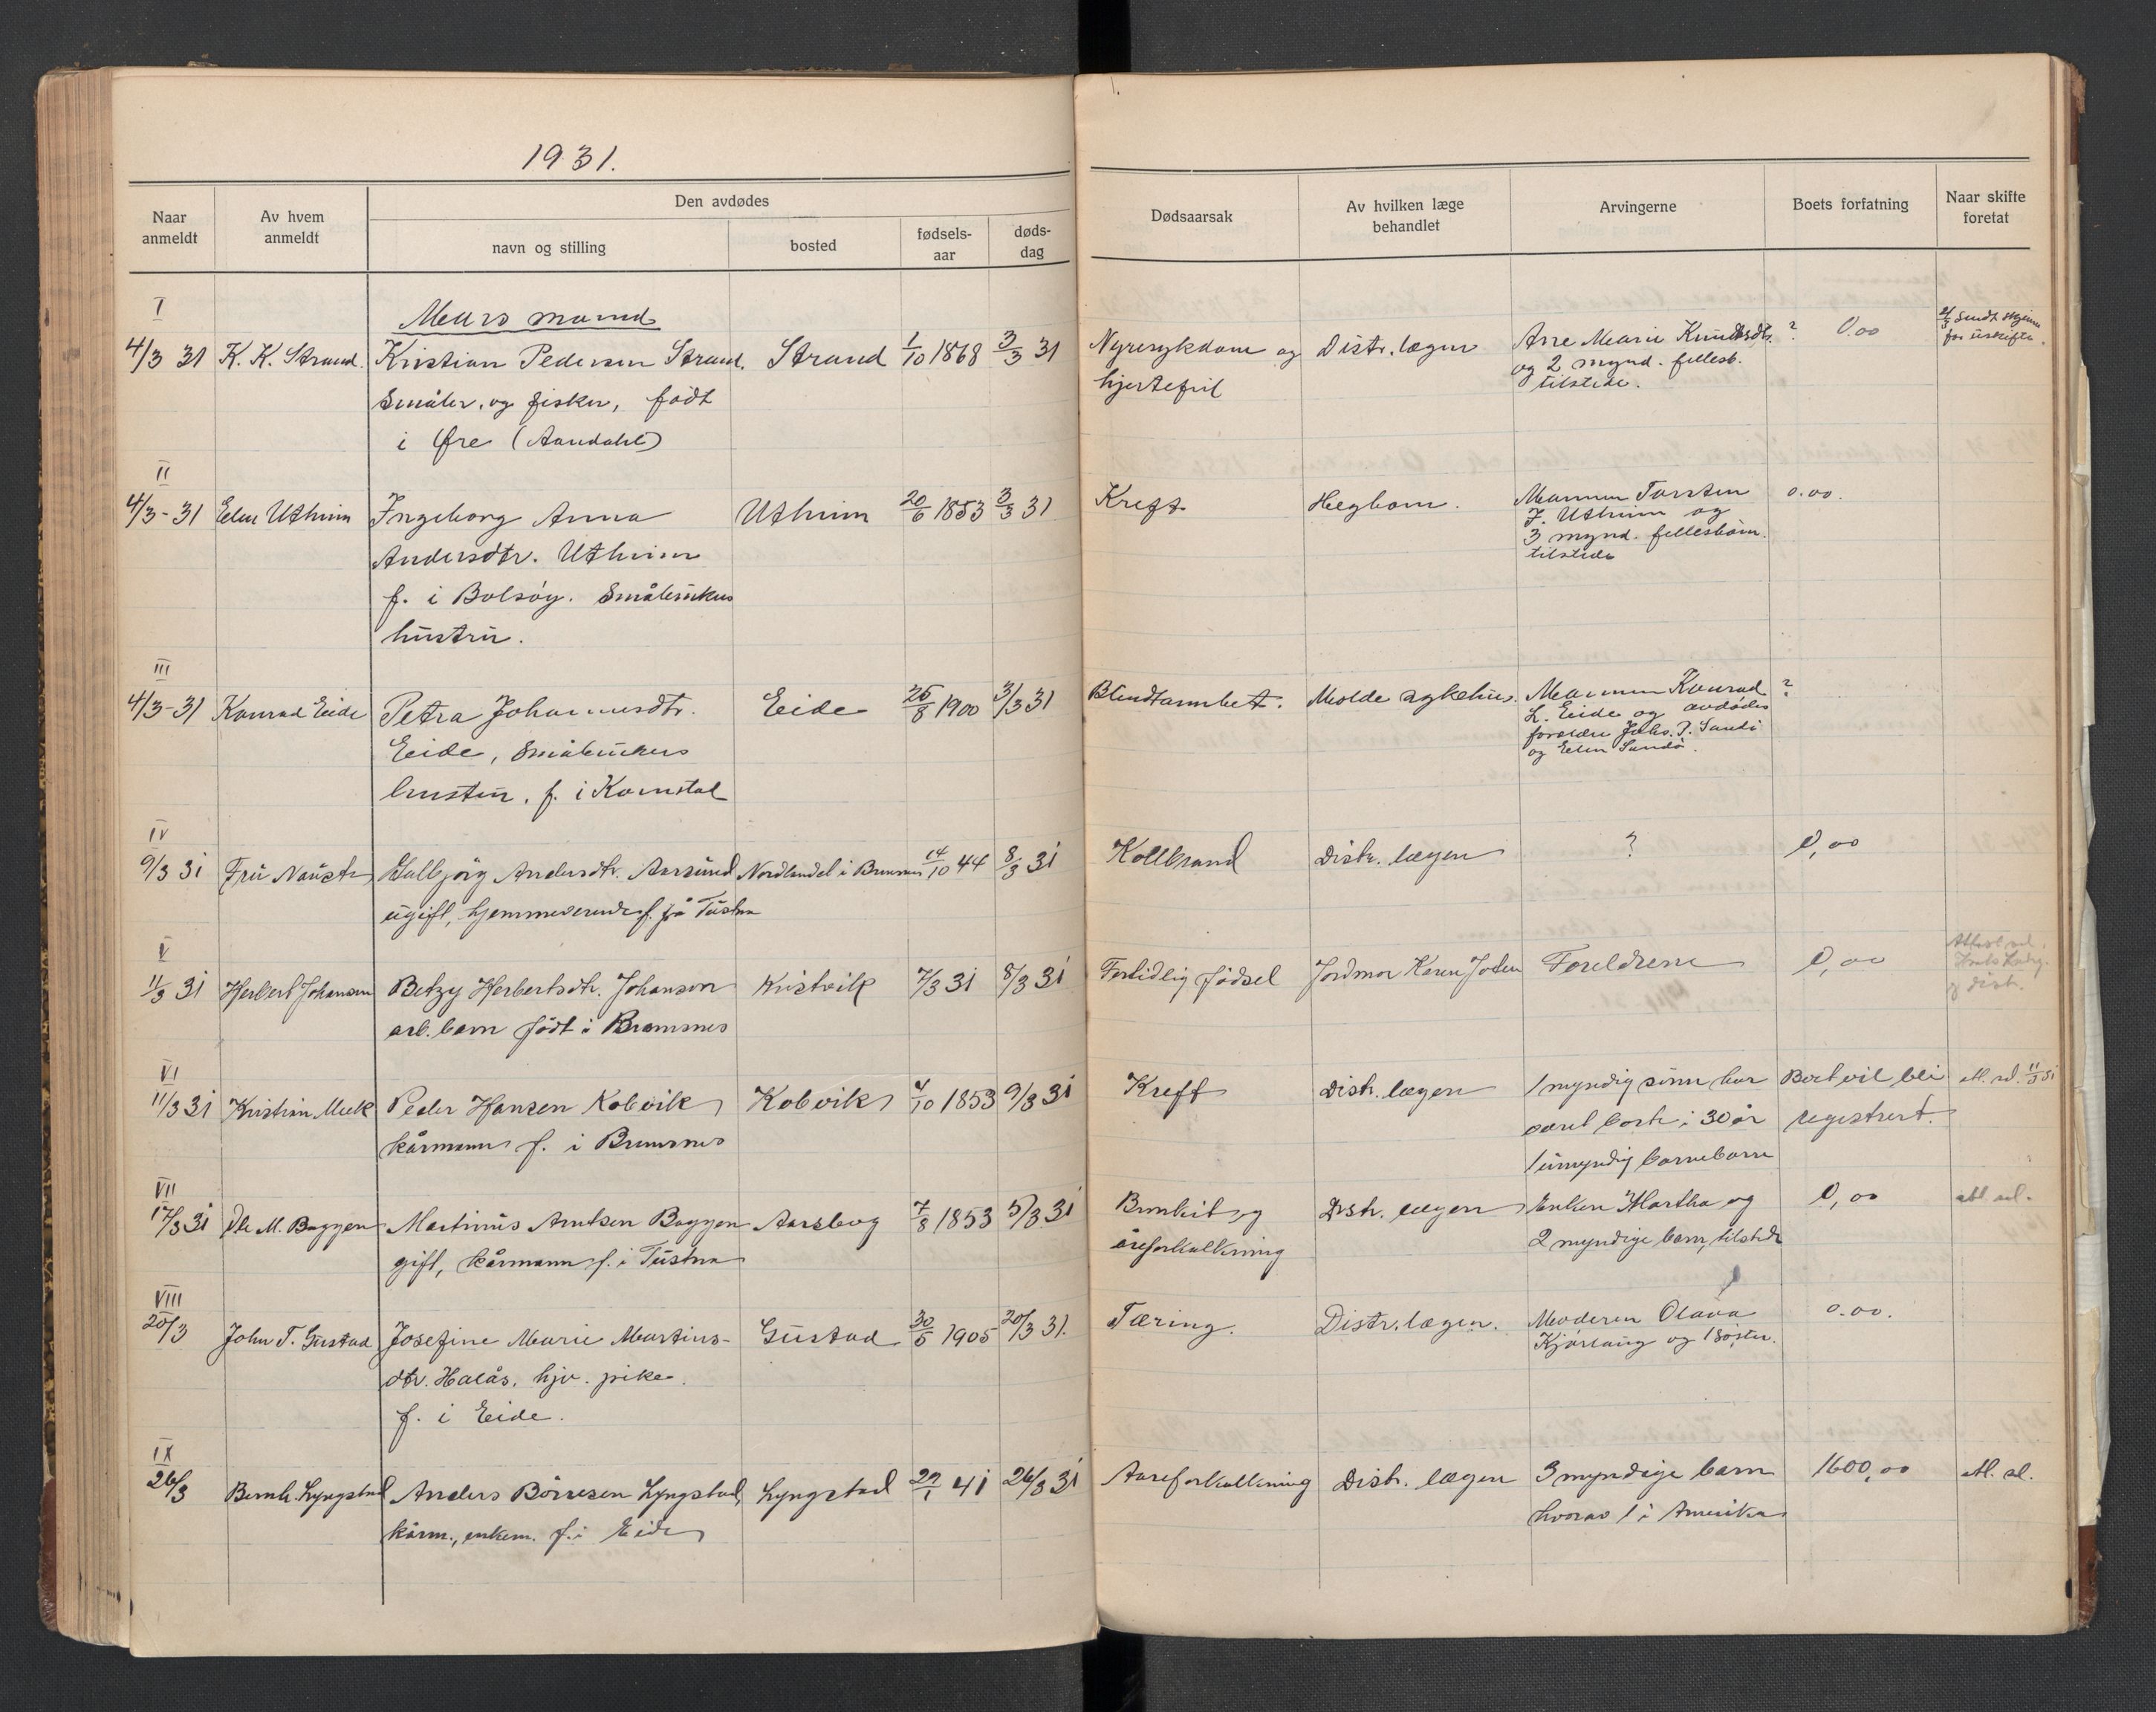 1931.
Naar anmeldt
Av hvem anmeldt
Den avdødes
navn og stilling
bosted
fødsels-aar
døds-dag
Dødsaarsak
Av hvilken læge behandlet
Arvingerne
Boets forfatning
Naar skifte foretat
Mars maaned
I
4/3 31 K. K. Strand. Kristian Pedersen Strand. Strand 1/10 1868 3/3 31 Nyresykdom og Distr. lægen Ane Marie Knudtsdtr. ? 0,00
Småbr. og fisker, født hjertefeil og 2 mynd. fellesb.
i Øre (Aandahl) tilstede.
II
4/3-31 Elen Utheim Ingeborg Anna Utheim 20/6 1853 3/3 31 Kreft Hegbom. Mannen Torsten 0.00.
Andersdtr. Utheim J. Utheim og
f. i Bolsöy. Småbrukers 3 mynd. fellesbörn.
hustru. tilstede
III
4/3-31 Konrad Eide Petra Johannesdtr. Eide 25/8 1900 3/3 31 Blindtarmbet. Molde sykehus. Mannen Konrad ?
Eide, Småbrukers L. Eide og avdödes
hustru. f. i Kornstad foreldre Johs. P. Sandö
og Elen Sandö.
IV
9/3 31 Fru Naustr Andersdtr. Aarsund Nordlandet i Bremsnes 14/10 44 8/3 31 Kollbrand Distr. lægen ? 0,00
ugift, hjemmeværende f. på Tustna
V
11/3 31 Herbert Johansen Betzy Herbertsdtr. Johansen Kristvik 7/3 31 8/3 31 Fortidlig födsel Jordmor Karen Foreldrene 0,00
arb. barn födt i Bremsnes
VI
11/3 31 Kristian Meek Peder Hansen Kobvik Kobvik 4/10 1853 9/3 31 Kreft Distr. lægen 1 myndig sönn har Boet vil bli att. ud. 11/3 31
kårmann f. i Bremsnes været borte i 30 år registrert.
1 umyndig barnebarn
VII
17/3 31 Ole M. Baggen Martinus Arntsen Baggen Aarsbog 7/8 1853 5/3 31 Bronkit og Distr. lægen Enken Martha og 0,00 att. ud.
gift, kårmann f. i Tustna åreforkalkning 2 myndige barn, tilstede
VIII
20/3 John T. Gustad Josefine Marie Martins- Gustad 30/5 1905 20/3 31. Tæring. Distr. lægen. Moderen Olava 0.00.
dtr. Halås, hjv. pike. og 1 söster.
f. i Eide.
IX
26/3 Bernh. Lyngstad Anders Börresen Lyngstad, Lyngstad 29/1 41 26/3 31 Aareforkalkning Distr. lægen 3 myndige barn 1600,00 att. ud.
kårm., enkem. f. i Eide hvorav 1 i Amerika